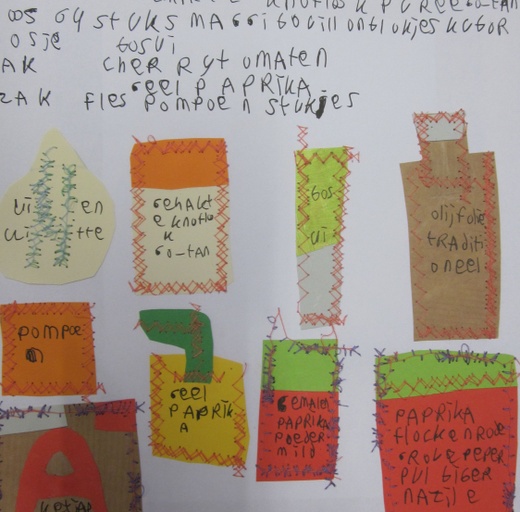 KNOFLOK PUREE CO-TAN
OS 64 STUKS MAGGI BOUILLONBLOKJES KUBOR
OSJE BOSUI
AK CHERRYTOMATEN
GEEL PAPRIKA
ZAK FLES POMPOEN STUKJES
ui en
ui tte
GEHAKT
E KNOFLO
K
CO-TAN
BOS-
UI
olijfolie
TRADiTi
ONEEL
POMPOE
N
GEEL
PAPRIK
A
GEMALEN
PAPRIKA
POEDER
MILD
PAPRIKA
flocken RODE
GROVE PEPER
PUL BIBER
NAZILE